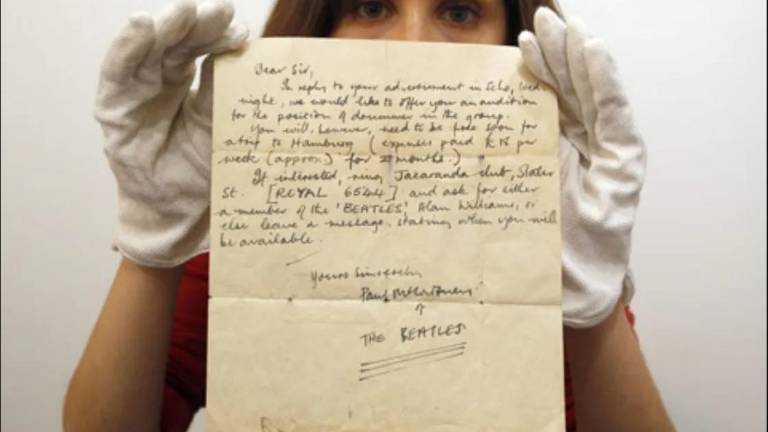 Dear Sir,
In reply to your advertisement in Echo, Wed.
night, we would like to offer you an audition
for the position of drummer in the group.
You will, however, need to be free soon for
a trip to Hamburg (expenses paid £18 per
week (approx.) for 2 months.)
If interested, ring Jacaranda club, Slater
St. [ROYAL 6544] and ask for either
a member of the 'BEATLES', Alan Williams, or
else leave a message, stating when you will
be available.
Yours Sincerely
Paul McCartney
of
THE BEATLES